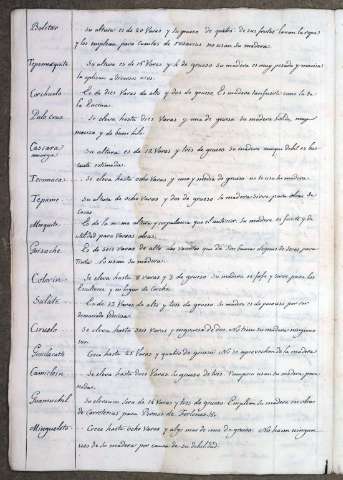 Bolitar Su altura es de 20 Varas y su grueso de quatro de sus frutos lavan la ropa
y los emplean para cuentas de rosarios no usan su madera.
Tepemesquite Su altura es de 15 Varas y 4 de grueso su madera es muy pesada y maciza
la aplican a diversos usos.
Corchuelo Es de diez Varas de alto y dos de grueso. Es madera tan fuerte como la de
la Encina.
Palo cruz Se eleva hasta diez Varas y una de grueso su madera solida muy
maciza y de buen hilo.
Cascara
amarga Su altura es de 12 Varas y tres de grueso su madera aunque debil es bas
tante estimada.
Se eleva hasta ocho Varas y una y media de grueso no se usa su madera.
Tepame Su altura de ocho Varas y dos de grueso la madera sirve para obras de
casas
Mezquite Es de la misma altura y corpulencia que el anterior su madera es fuerte y de
utilidad para Varias obras.
Es de seis varas de alto las varillas que dá son buenas despues de secas para
no usan su madera.
Colorin Se eleva hasta 8 varas y 3 de grueso su madera es fofa y sirve para los
Escultores y en lugar de Corcho.
Salate Es de 12 Varas de alto y tres de grueso su madera es de poco uso por ser
demasiado
Ciruelo Se eleva hasta diez Varas y engruesa de dos. No tiene su madera ningun
uso.
Crece hasta 25 Varas y quatro de grueso. No se aprovechan de la madera.
Se eleva hasta diez Varas la grueso de tres. Tampoco usan su madera para
nada.
Guamuchil Su elevacion sera de 16 Varas y tres de grueso. Emplean su madera en obras
de Carreteria para Piernas de Forlones &.
Crece hasta ocho Varas y algo mas de una de grueso. No hacen ningun
uso de su madera por causa de su debilidad.